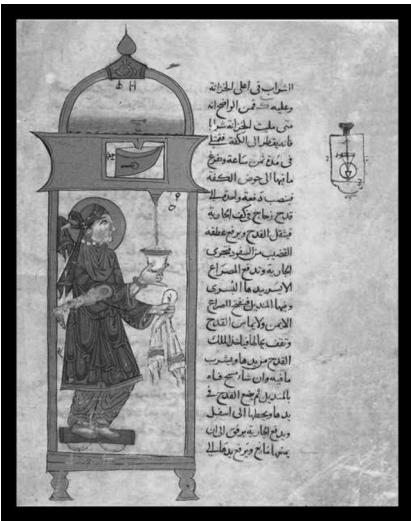 الشراب في اعلى الخزانة
وعليه فمن الواضح انه
متى مليت الخزانة شرابا
فانه يقطر الى الكفة فتمتلئ
في مدة ثمن ساعة وتفرغ
ما فيها الى حوض الكفة
فينصب دفعة واحدة الى
قدح زجاج في كف الجارية
فيثقل القدح ويرتفع عطفة
القضيب من السفود فتجري
الجارية وتدفع المصراع
الايسر بيدها اليسرى
وفيها المنديل فيفتح المصراع
الايمن ولا يماس القدح
وتقف بحالها فياخذ الملك
القدح من يدها ويشرب
ما فيه وان شاء مسح فاه
بالمنديل ثم يضع القدح في
يدها ويحطها الى اسفل
ويدفع الجارية برفق الى ان
ويرفع يدها الى